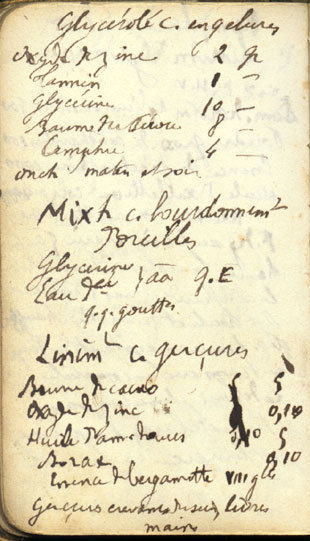 Glycérolé c. engelures
Oxyde de zinc 2 gr
Tannin 1 —
Glycérine 10 —
Baume du Pérou 8 —
Camphre 4 —
onct. matin et soir
Mixt c. bourdonnemt
d'oreilles
Glycérine
Eau dee } āā q.E
q.q. gouttes
Linimt c. gerçures
Beurre de cacao 5 5
Oxyde de zinc 0,10
Huile d'am. douces 5
Borax 0,10
Essence de bergamotte VIII gtes
Gerçures crevasses du sein, lèvres
mains